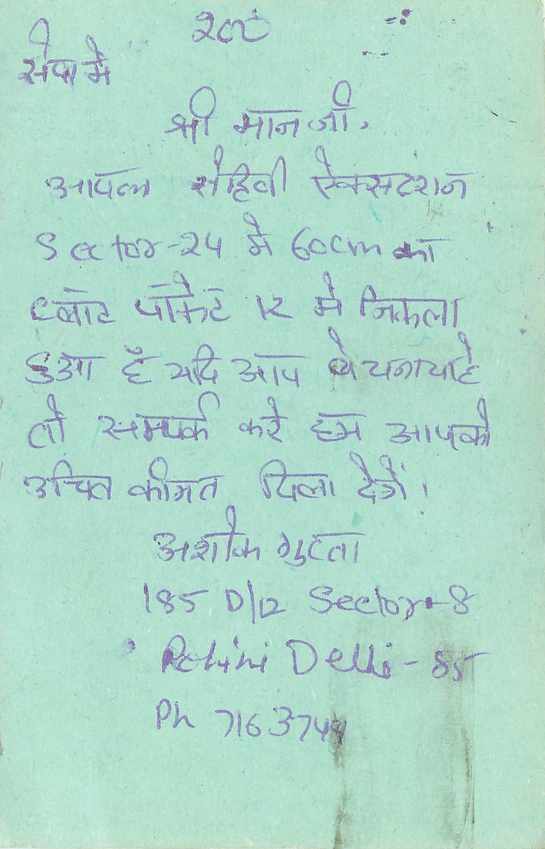 सेवा में
श्री मान जी,
आपका रोहिणी ऐक्सटेंशन
Sector-24 में 60cm का
प्लाट पॉकेट 12 में निकला
हुआ है यदि आप बेचना चाहे
तो सम्पर्क करे हम आपको
उचित कीमत दिला देगें।
अशोक गुप्ता
185 D/12 Sector-8
Rohini Delhi-85
Ph 716374